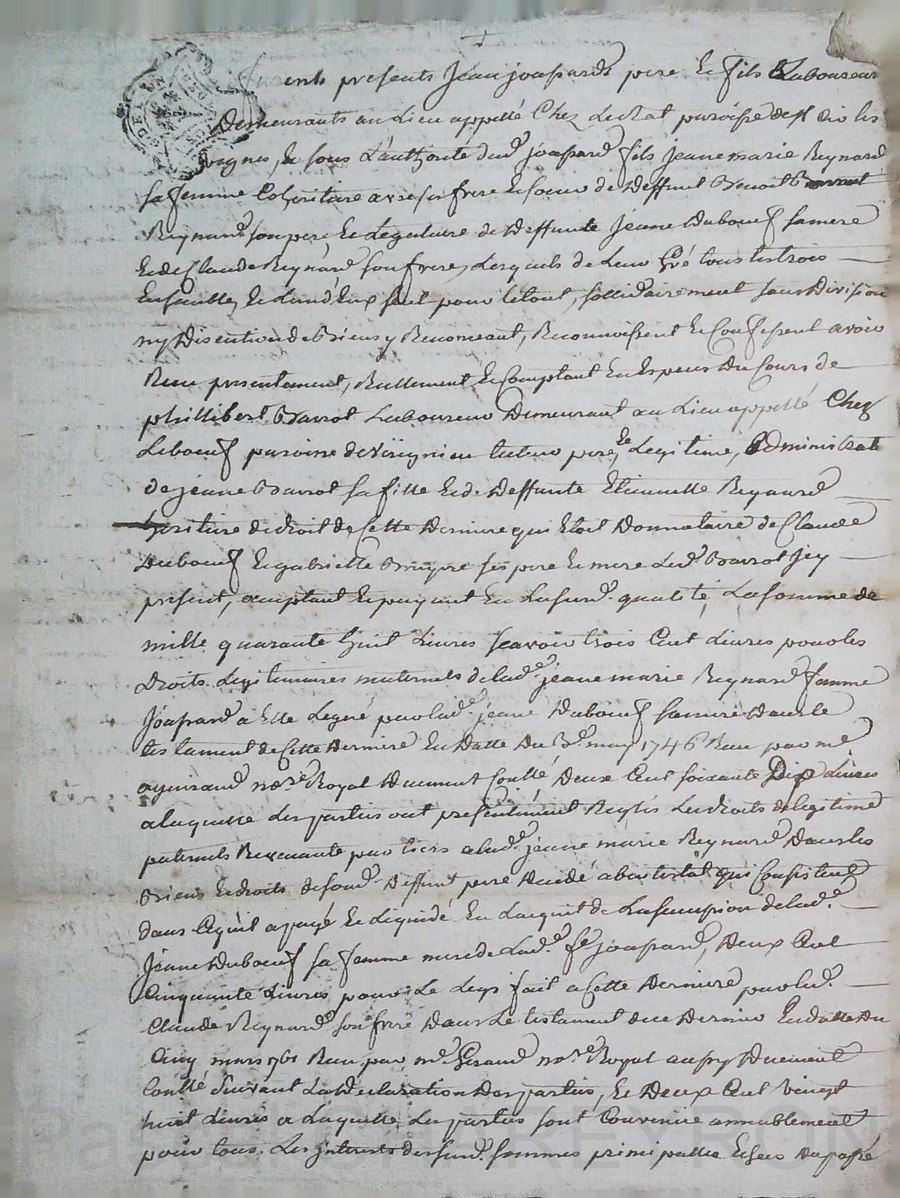 Furents presents Jean joassard père Et fils Laboureur
Demeurants au Lieu appellé Chez Leclat paroisse de St Dio les
bagnes, Et sous L'authorité dud. joassard fils Jeanne marie Reynard
sa femme Cohéritiere avec ses frere Et soeur de Deffunt Benoit
Reynard son pere, Et Legataire de Deffunte Jeanne Duboeuf sa mere
Et de Claude Reynard son frere, Lesquels de Leur Gré tous les trois
Ensemble, Et L'un d'Eux seul pour le tout, sollidairement sans Division
ny Discution de Biens y Renonceant, Reconnoissent Et Confessent avoir
Reçu presentement, Reellement Et Comptant En Especes Du Cours de
phillibert Barrot Laboureur Demeurant au Lieu appellé Chez
Leboeuf paroisse de tuteur pere, Et Legitime, administrat
de jeanne Barrot sa fille Et de Deffunte Etiennette Reynard
heritiere de droit de Cette Derniere qui Etoit Donnataire de Claude
Duboeuf Et gabrielle Bruyere ses pere Et mere Led. Barrot Icy
présent, acceptant Et payant En La susd. qualité, La somme de
mille quarante huit Livres sçavoir trois Cent Livres pour les
Droits Legitimaires maternels de lad. jeanne marie Reynard femme
Joassard a Elle Legué par lad. jeanne Duboeuf sa mere dans le
testament de Cette Derniere En Datte Du may 1746 Reçu par me
not.re Royal Duement Conllé, Deux Cent soixante Dix Livres
a laquelle Les parties ont presentement Reglés Les droits de legitime
paternels Revenants pour tiers a lad. jeanne marie Reynard Dans les
Biens Et droits de son d. Deffunt pere Decedé abintestat qui Consistent
dans Ce qu'il a payé Et Liquidé En L'acquit de La succession de lad.
Jeanne Duboeuf sa femme mere de Lad. fe joassard, Deux Cent
Cinquante Livres pour Le Legs fait a Cette Derniere par led.
Claude Reynard son frere Dans Le testament de ce Dernier En datte Du
Cinq mars 1761 Reçu par me Giraud not.re Royal aussy Duement
Conllé Suivant La Declaration Des parties, Et Deux Cent vingt
huit Livres a Laquelle Les parties sont Convenue amiablement
pour tous Les Interests des susd. sommes principalle Echeus Du passé